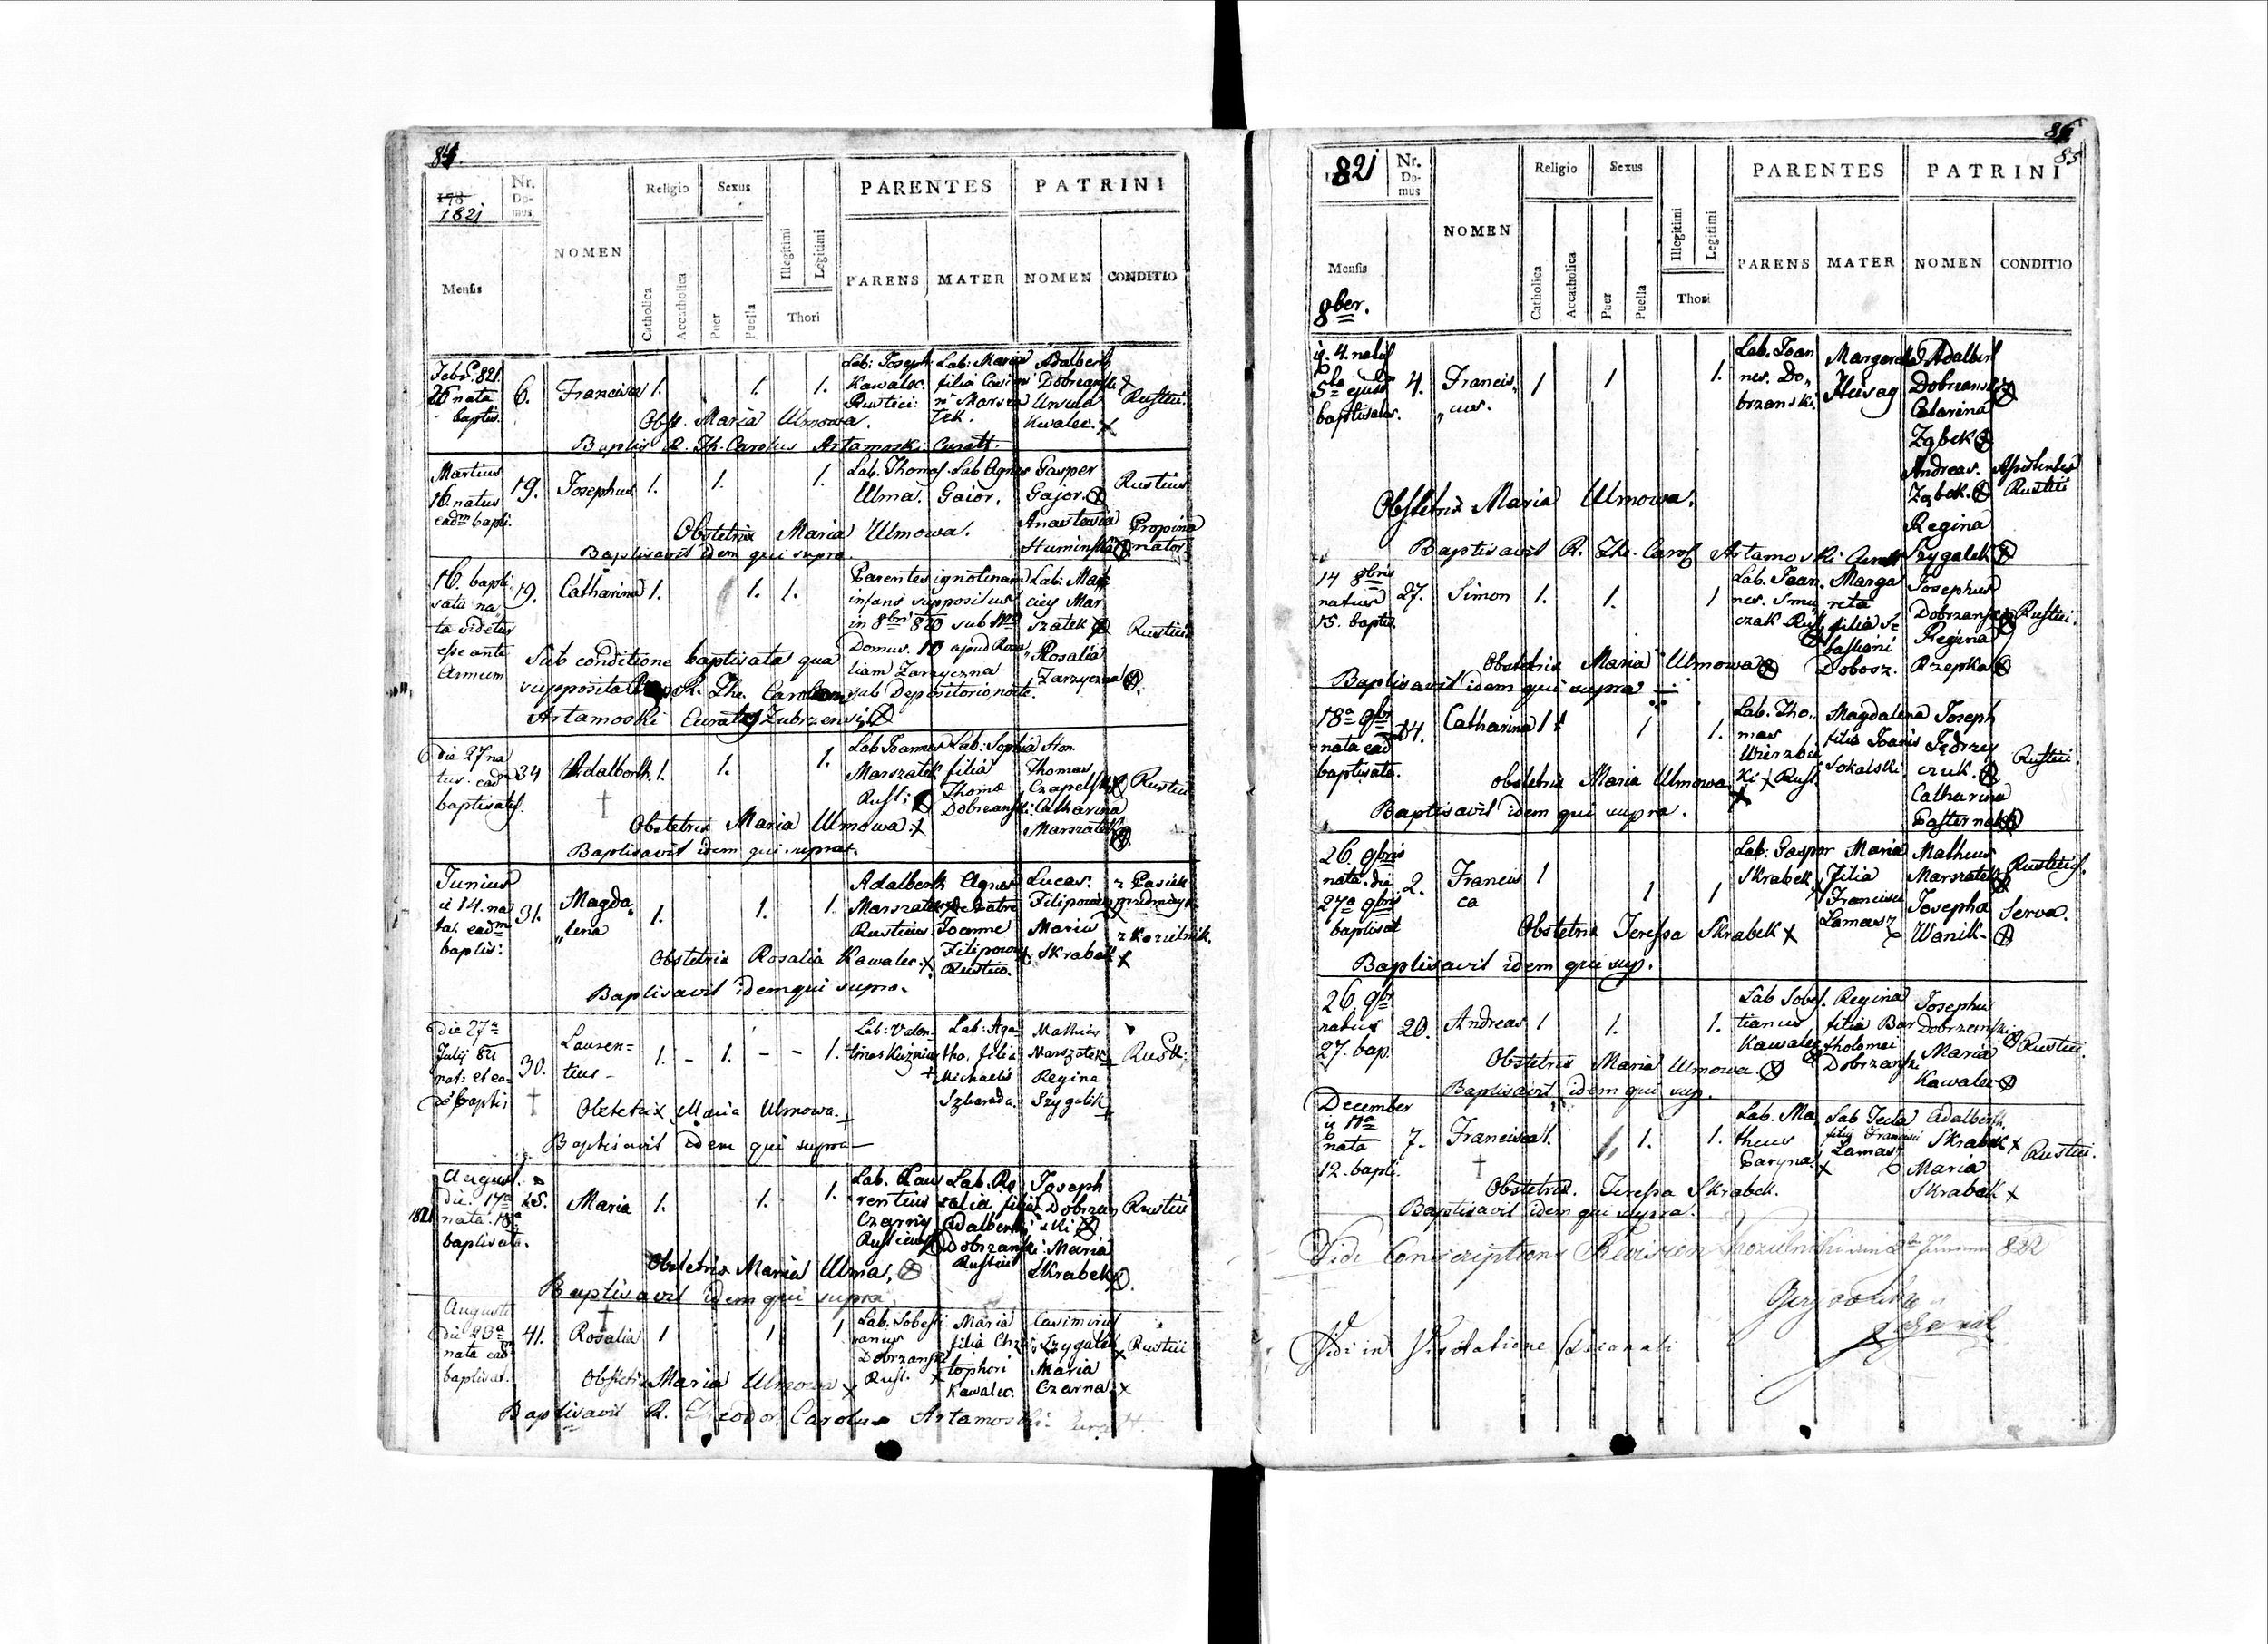 84.
178
1821
Nr. Domus
NOMEN
Religio
Sexus
PARENTES
PATRINI
Mensis
Catholica
Accatholica
Puer
Puella
Illegitimi
Legitimi
Thori
PARENS
MATER
NOMEN
CONDITIO
Febr. 821.
26 nata
baptis.
6.
Francisca
1.
1.
1.
Lab: Joseph
Kawalec.
Rustici:
Lab: Maria
filia Casimi
Adalbert
Dobrzański
Ursula
Kwalec.
Rustici.
Obst. Maria Ulmowa.
Baptis R. Th. Carolus Artamoski Curatt.
Martius
16. natus
eadm bapti.
19.
Josephus
1.
1.
1.
Lab. Thomas
Ulma.
Lab Agnes
Gaior.
Gasper
Gajor.
Anastasia
Huminska
Rusticus
Propina
nator.
Obstetrix Maria Ulmowa.
Baptisavit idem qui supra.
16. bapti
sata na
ta videtur
esse ante
Annum
19.
Catharina
1.
1.
1.
Parentes ignoti nam
infans suppositus
in 8bri 820 sub Nro
Domus. 10 apud Rosa
liam Zarzyczna
sub Depositorio nocte.
Lab: Mat
ciey Mar
szalek
Rosalia
Zarzyczna
Rustici
Sub conditione baptisata qua
supposita per R. Th. Carolum
Artamoski Curat. Zubrzensi.
die 27 na
tus. eadm
baptisatus.
34
Adalbert.
1.
1.
1.
Lab Joannes
Marszałek
Rusti:
Lab: Sophia
filia
Thoma
Dobrzański
Hon.
Thomas
Czapelski
Catharina
Marszałek
Rustici
Obstetrix Maria Ulmowa.
Baptisavit idem qui supra.
Junius
ii 14. na
ta. eadm
baptis:
31.
Magda
lena
1.
1.
1.
Adalbert
Marszałek
Rusticus
Agnes
de Patre
Joanne
Filipowicz
Rustico.
Lucas.
Filipowicz
Maria
Skrabek
z Pasiek
z Kozielnik.
Obstetrix Rosalia Kawalec.
Baptisavit idem qui supra.
Die 27a
Julij 821
nat: et ea
30.
Lauren=
tius -
1. - 1. - - 1.
Lab: Valen=
tinus Kuźniar
Lab: Aga
tha. filia
Michaelis
Szbarada.
Mathias
Marszałek
Regina
Szygalik
Rusti:
Obstetrix Maria Ulmowa.
Baptisavit idem qui supra
August.
die 17a
nata. 18a
baptisata.
1821
25.
Maria
1.
1.
1.
Lab. Lau
rentius
Czarny
Rusticus
Lab. Ro
salia filia
Adalberti
Dobrzański
Rustici
Joseph
Dobrzań
ski
Maria
Skrabek
Rustici
Obstetrix Maria Ulma.
Baptisavit idem qui supra
Augusti
die 23a
nata ead
baptisat.
41.
Rosalia
1
1
1.
Lab. Sebasti
anus
Dobrzański
Rust.
Maria
filia Chris
tophori
Kawalec.
Casimirus
Szygalek
Maria
Czarna
Rustici
Obstetrix Maria Ulmowa
Baptisavit R. Theodor. Carolus Artamoski Curatt.
85
821
Nr. Domus
NOMEN
Religio
Sexus
PARENTES
PATRINI
Mensis
8ber.
Catholica
Accatholica
Puer
Puella
Illegitimi
Legitimi
Thori
PARENS
MATER
NOMEN
CONDITIO
ii. 4. natus
5ta ejusd
baptisatus.
4.
Francis
cus.
1
1
1.
Lab. Joan
nes. Do
brzanski.
Margareta
Adalbert
Dobrzanski
Catarina
Ząbek
Andreas.
Ząbek.
Regina
Szygalek
Assistentes
Rustici
Obstetrix Maria Ulmowa.
Baptisavit R. Th. Carol Artamoski Curatt
14 8bris
natus
15. baptis.
27.
Simon
1.
1.
1
Lab. Joan
nes. Smu
czak Rust
Marga
reta
filia Se
bastiani
Dobosz.
Josephus
Dobrzański
Regina
Rzepka
Rustici.
Obstetrix Maria Ulmowa
Baptisavit idem qui supra
18a 9bri
nata ead
baptisata.
Catharina
1
1
1.
Lab. Tho
mas
Wierzbic
ki Rust.
Magdalena
filia Joanis
Sokalski
Joseph
Jędrzey
czuk.
Catharina
Pasternak
Rustici.
obstetrix Maria Ulmowa
Baptisavit idem qui supra.
26. 9bris
nata. die
27a 9bris
baptisat
2.
Francis
ca
1
1
1
Lab: Gasper
Skrabek
Maria
filia
Francisci
Lamasz
Matheus
Marszałek
Josepha
Wanik.
Rusticus.
Serva.
Obstetrix Teressa Skrabek
Baptisavit idem qui sup.
26. 9br
natus
27. bap.
20.
Andreas
1
1.
1.
Lab Sebas
tianus
Kawalec
Regina
filia Bar
tholomei
Dobrzański
Josephus
Dobrzański
Maria
Kawalec
Rustici.
Obstetrix Maria Ulmowa.
Baptisavit idem qui sup.
December
ii 11a
nata
12. bapti.
7.
Francisca
1.
1.
1.
Lab. Ma
theus
Paryna.
Lab Tecla
filia Francisci
Lamasz
Adalbert.
Skrabek
Maria
Skrabek
Rustici.
Obstetrix. Teressa Skrabek.
Baptisavit idem qui supra.
Vidi Conscriptions Revision 822
Vidi in Visitatione Decanali